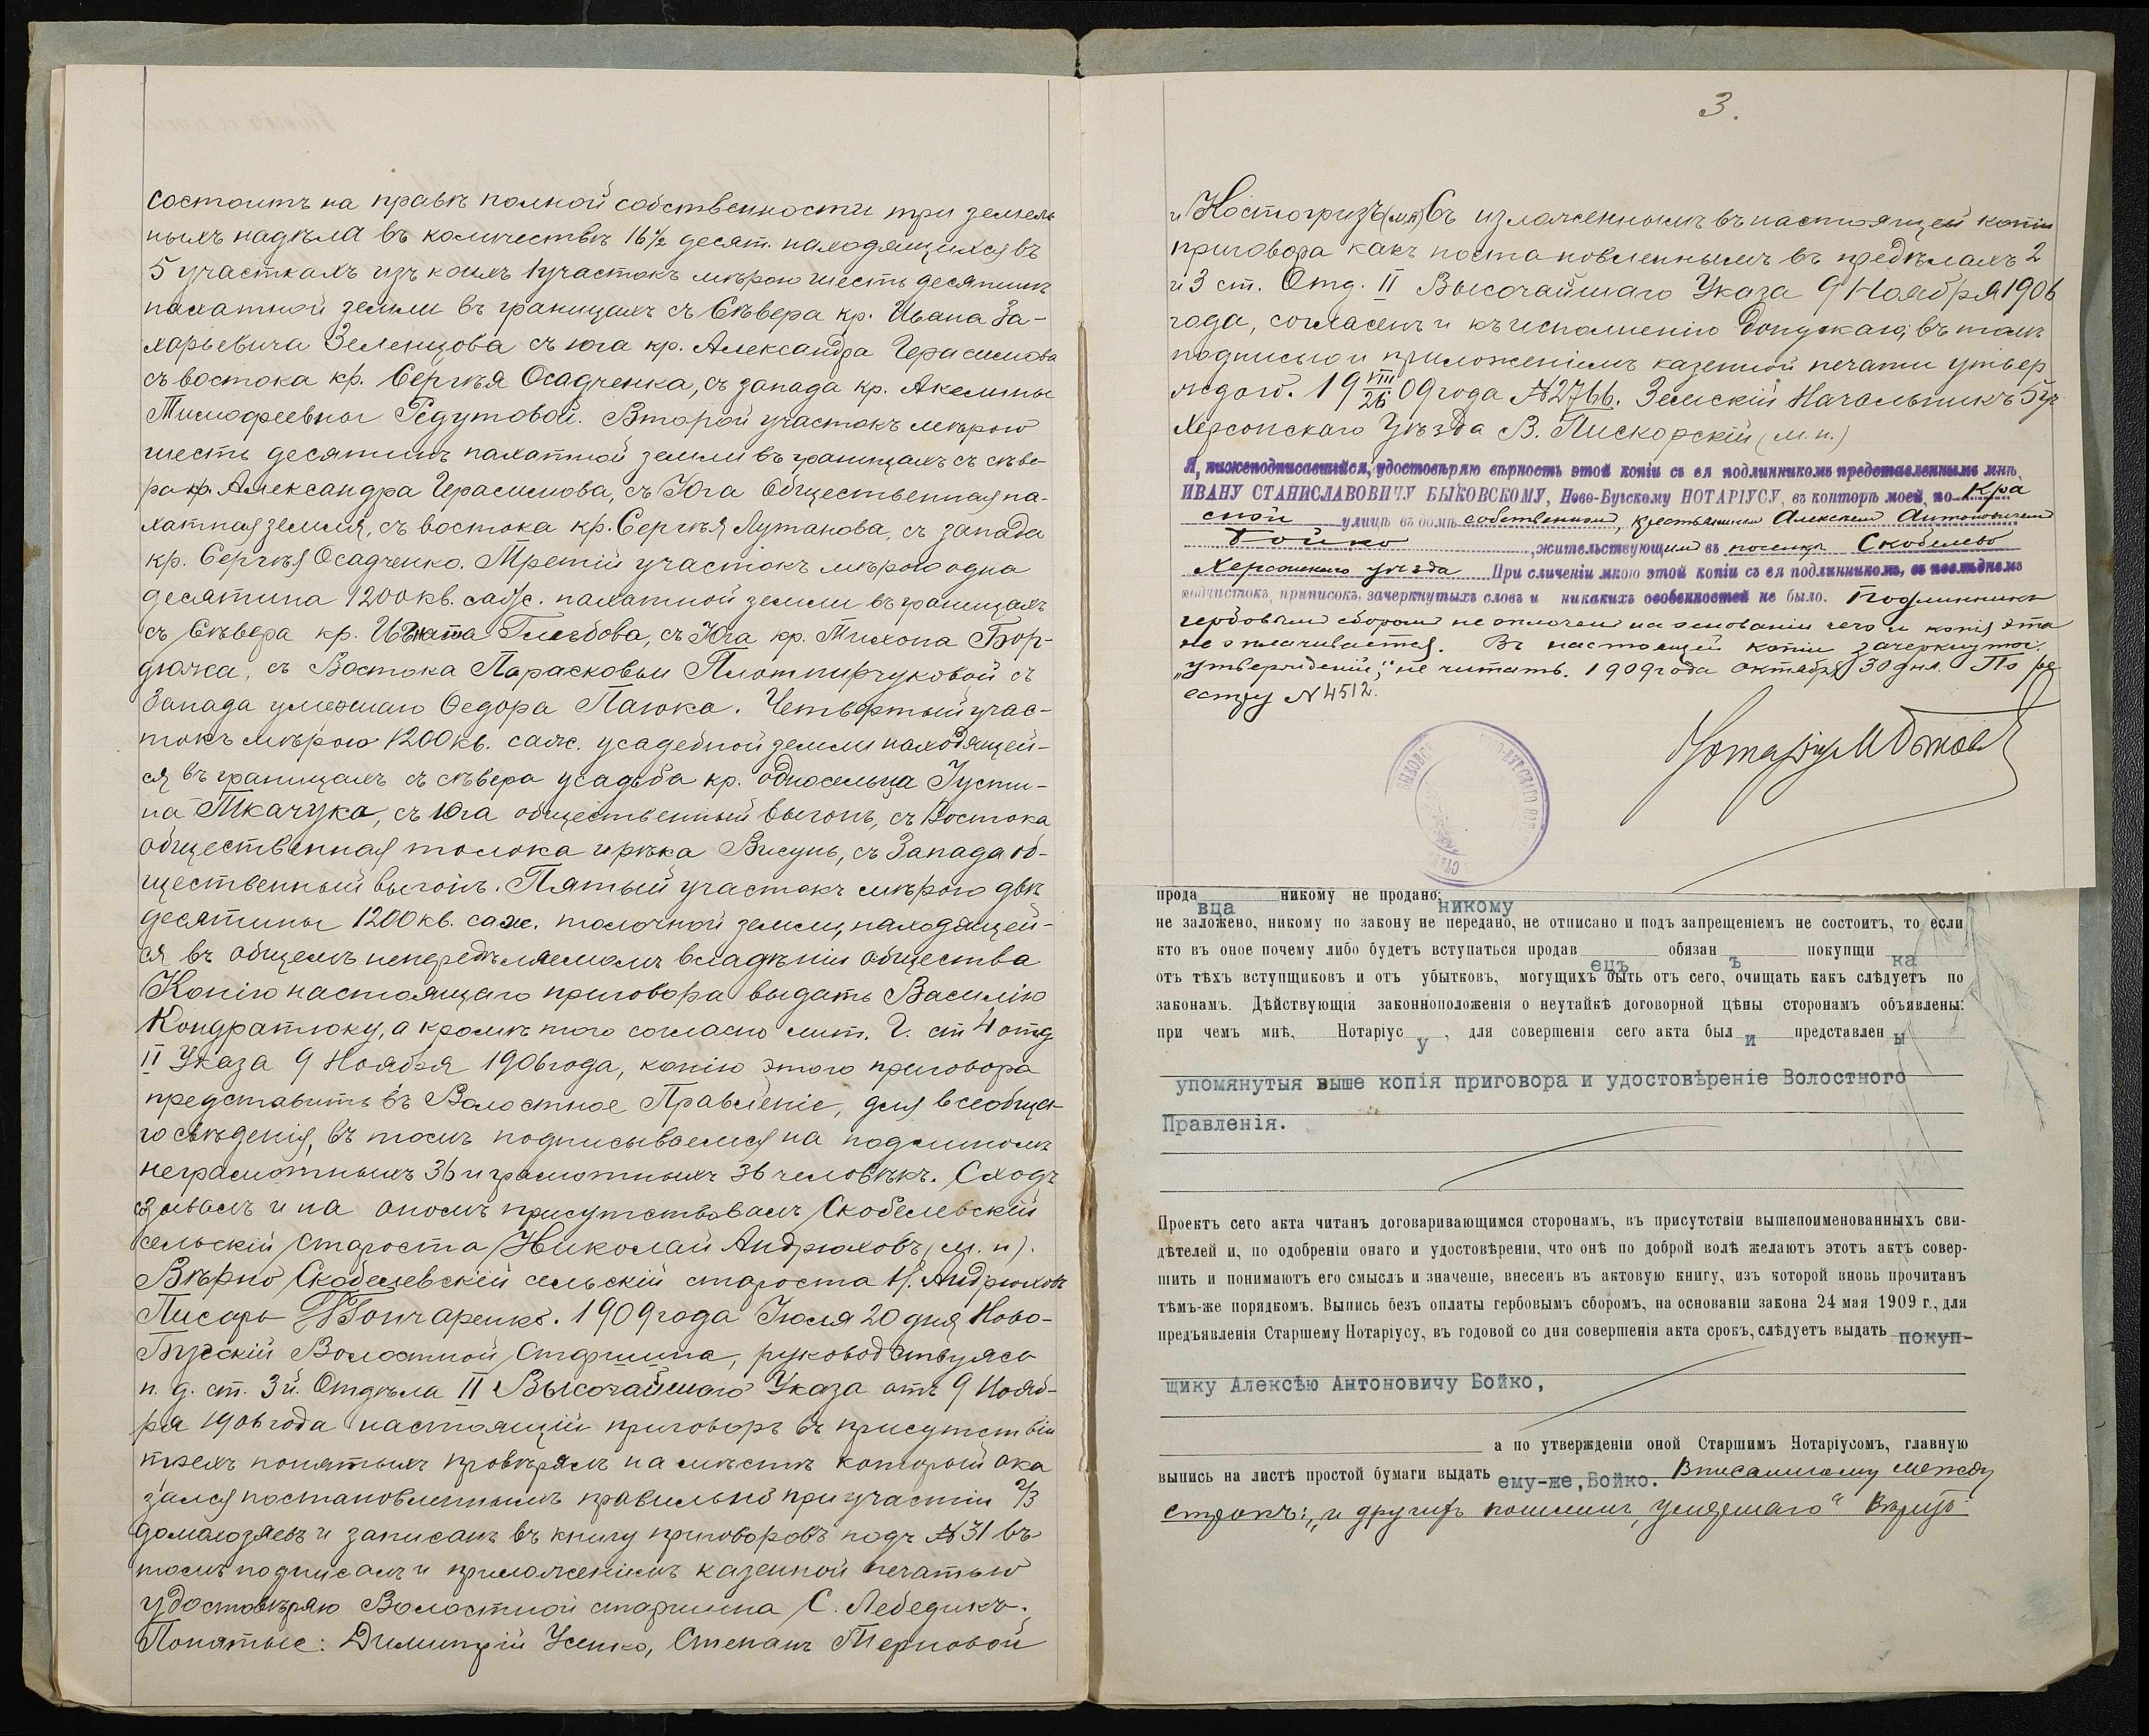 состоитъ на правѣ полной собственности три земель
ныхъ надѣла въ количествѣ 16½ десят. находящихся въ
5 участкахъ изъ коихъ 1 участокъ мѣрою шесть десятинъ
пахатной земли въ границахъ съ Сѣвера кр. Ивана За-
харьевича Зеленцова съ юга кр. Александра Герасимова
съ востока кр. Сергѣя Осадченка, съ запада кр. Акелины
Тимофеевны Редутовой. Второй участокъ мѣрою
шесть десятинъ пахатной земли въ границахъ съ сѣве-
ра кр. Александра Герасимова, съ Юга Общественная па-
хатная земля, съ востока кр. Сергѣя Лутанова, съ запада
кр. Сергѣя Осадченко. Третій участокъ мѣрою одна
десятина 1200 кв. саж. пахатной земли въ границахъ
съ Сѣвера кр. Игната Глебова, съ Юга кр. Тихона Бор-
дюжа, съ Востока Парасковьи Плотнирчуковой съ
Запада умершаго Федора Паюка. Четвертый учас-
токъ мѣрою 1200 кв. саж. усадебной земли находящей-
ся въ границахъ съ сѣвера усадьба кр. односельца Густи-
на Ткачука, съ Юга общественный выгонъ, съ Востока
общественная толока и рѣка Висунь, съ Запада об-
щественный выгонъ. Пятый участокъ мѣрою двѣ
десятины 1200 кв. саж. толочной земли, находящей-
ся въ общемъ непередѣляемомъ владѣніи общества
Копію настоящаго приговора выдать Василію
Кондратюку, а кромѣ того согласно лит. Г. ст 4 отд
II Указа 9 Ноября 1906 года, копію этого приговора
представить въ Волостное Правленіе, для всеобща-
го свѣденія, въ томъ подписываемся на подлиномъ
неграмотныхъ 36 и грамотныхъ 36 человѣкъ. Сходъ
сзывалъ и на ономъ присутствовалъ Скобелевскій
сельскій староста Николай Андрюховъ (м. п).
Вѣрно Скобелевскій сельскій староста Н. Андрюховъ
Писарь Гончаренко. 1909 года Іюля 20 дня Ново-
Бугскій Волостной Старшина, руководствуясь
п. д. ст. 3й. Отдѣла II Высочайшаго Указа отъ 9 Нояб-
ря 1906 года настоящій приговоръ въ присутствіи
трехъ понятыхъ провѣрялъ на мѣстѣ который ока
зался постановленнымъ правильно при участіи 2/3
домохозяевъ и записанъ въ книгу приговоровъ подъ № 31 въ
томъ подписомъ и приложеніемъ казенной печатью
удостовѣряю Волостной старшина С. Лебедикъ.
Понятые: Димитрій Усенко, Степанъ Терновой
3.
и Костогризъ (м.п) Съ изложеннымъ въ настоящей копіи
приговора какъ постановленнымъ въ предѣлахъ 2
и 3 ст. Отд. II Высочайшаго Указа 9 Ноября 1906
года, согласенъ и къ исполненію допускаю, въ томъ
подписью и приложеніемъ казенной печати утвер
ждаю. 19 VIII/26 09 года №2766. Земскій Начальникъ 5 уч
Херсонскаго Уѣзда В. Пискорскій (м. п.)
Я, нижеподписавшійся, удостовѣряю вѣрность этой копіи съ ея подлинникомъ представленнымъ мнѣ
ИВАНУ СТАНИСЛАВОВИЧУ БЫКОВСКОМУ, Ново-Бугскому НОТАРІУСУ, въ конторѣ моей, по Кра
сной улицѣ въ домѣ собственномъ, крестьяниномъ Алексѣемъ Антоновичемъ
Бойко, жительствующимъ въ поселкѣ Скобелево
Херсонскаго уѣзда При сличеніи мною этой копіи съ ея подлинникомъ, въ послѣднемъ
подчистокъ, приписокъ, зачеркнутыхъ словъ и никакихъ особенностей не было. Подлинникъ
гербовымъ сборомъ не оплаченъ на основаніи чего и копія эта
не оплачивается. Въ настоящей копіи зачеркнутое:
„утвержденій;" не читать. 1909 года октября 30 дня. По ре
естру N 4512.
Нотаріус И Быков
прода вца никому не продано; никому
не заложено, никому по закону не передано, не отписано и подъ запрещеніемъ не состоитъ, то если
кто въ оное почему либо будетъ вступаться продав ецъ обязан ъ покупщи ка
отъ тѣхъ вступщиковъ и отъ убытковъ, могущихъ быть отъ сего, очищать какъ слѣдуетъ по
законамъ. Дѣйствующія законноположенія о неутайкѣ договорной цѣны сторонамъ объявлены:
при чемъ мнѣ, Нотаріус у, для совершенія сего акта был и представлен ы
упомянутыя выше копія приговора и удостовѣреніе Волостного
Правленія.
Проектъ сего акта читанъ договаривающимся сторонамъ, въ присутствіи вышепоименованныхъ сви-
дѣтелей и, по одобреніи онаго и удостовѣреніи, что онѣ по доброй волѣ желаютъ этотъ актъ совер-
шить и понимаютъ его смыслъ и значеніе, внесенъ въ актовую книгу, изъ которой вновь прочитанъ
тѣмъ-же порядкомъ. Выпись безъ оплаты гербовымъ сборомъ, на основаніи закона 24 мая 1909 г., для
предъявленія Старшему Нотаріусу, въ годовой со дня совершенія акта срокъ, слѣдуетъ выдать покуп-
щику Алексѣю Антоновичу Бойко,
а по утвержденіи оной Старшимъ Нотаріусомъ, главную
выпись на листѣ простой бумаги выдать ему-же, Бойко. Вписанному между
строкъ: „и другихъ пошлинъ,